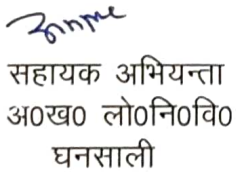 सहायक अभियन्ता
अ0ख0 लो0नि0वि0
घनसाली